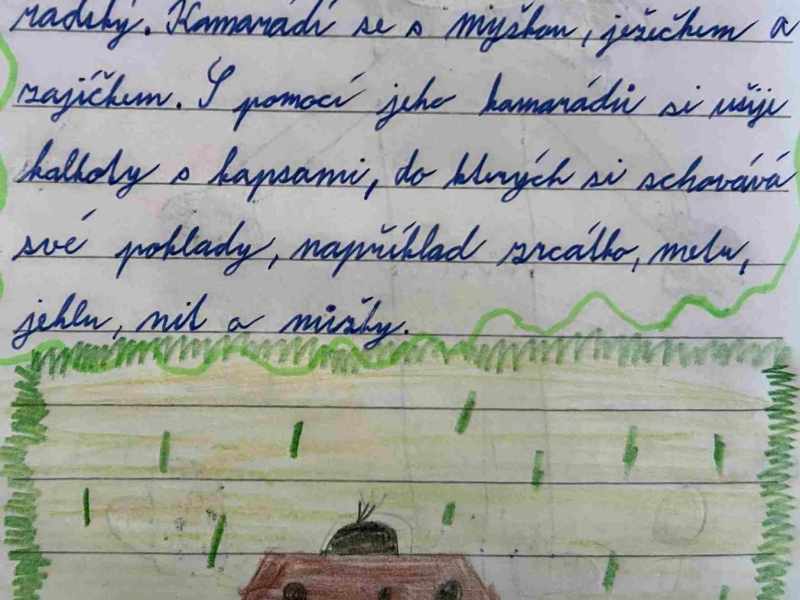 radský. Kamarádí se s myškou, ježečkem a
zajíčkem. S pomocí jeho kamarádů si ušije
kalhoty s kapsami, do kterých si schovává
své poklady, například zrcátko, metr,
jehlu, nit a nůžky.